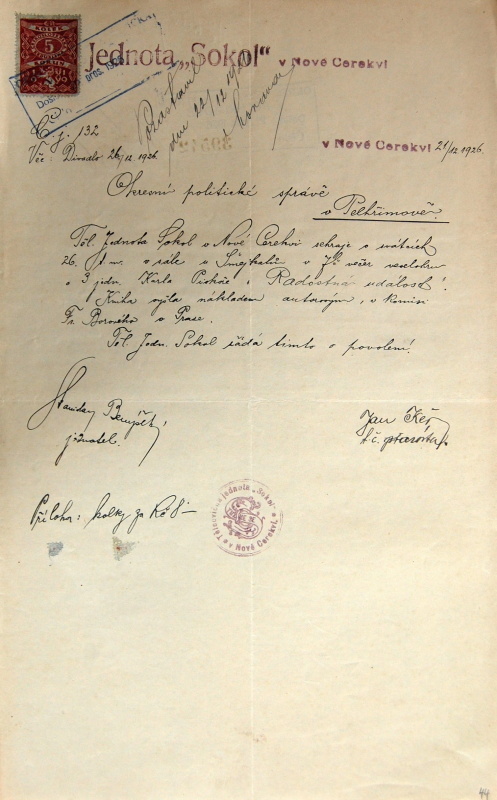 Jednota „Sokol“ v Nové Cerekvi
5
pros. 1926
dne 22/12 1926
Č. j. 132
v Nové Cerekvi 21/12 1926.
Věc: Divadlo 26/12 1926.
Okresní politické správě
v Pelhřimově.
Těl. Jednota Sokol v Nové Cerekvi sehraje o svátcích
26. t. m. v sále u Smejkalů v 7½ večer veselohru
o 3 jedn. Karla „Radostná událost“.
Kniha vyšla nákladem autorovým, v komisi
Fr. Borového v Praze.
Těl. Jedn. Sokol žádá tímto o povolení.
Jan
jednatel.
t. č. starosta.
Příloha: kolky za Kč 8-
Tělocvičná jednota „Sokol“ v Nové Cerekvi
44